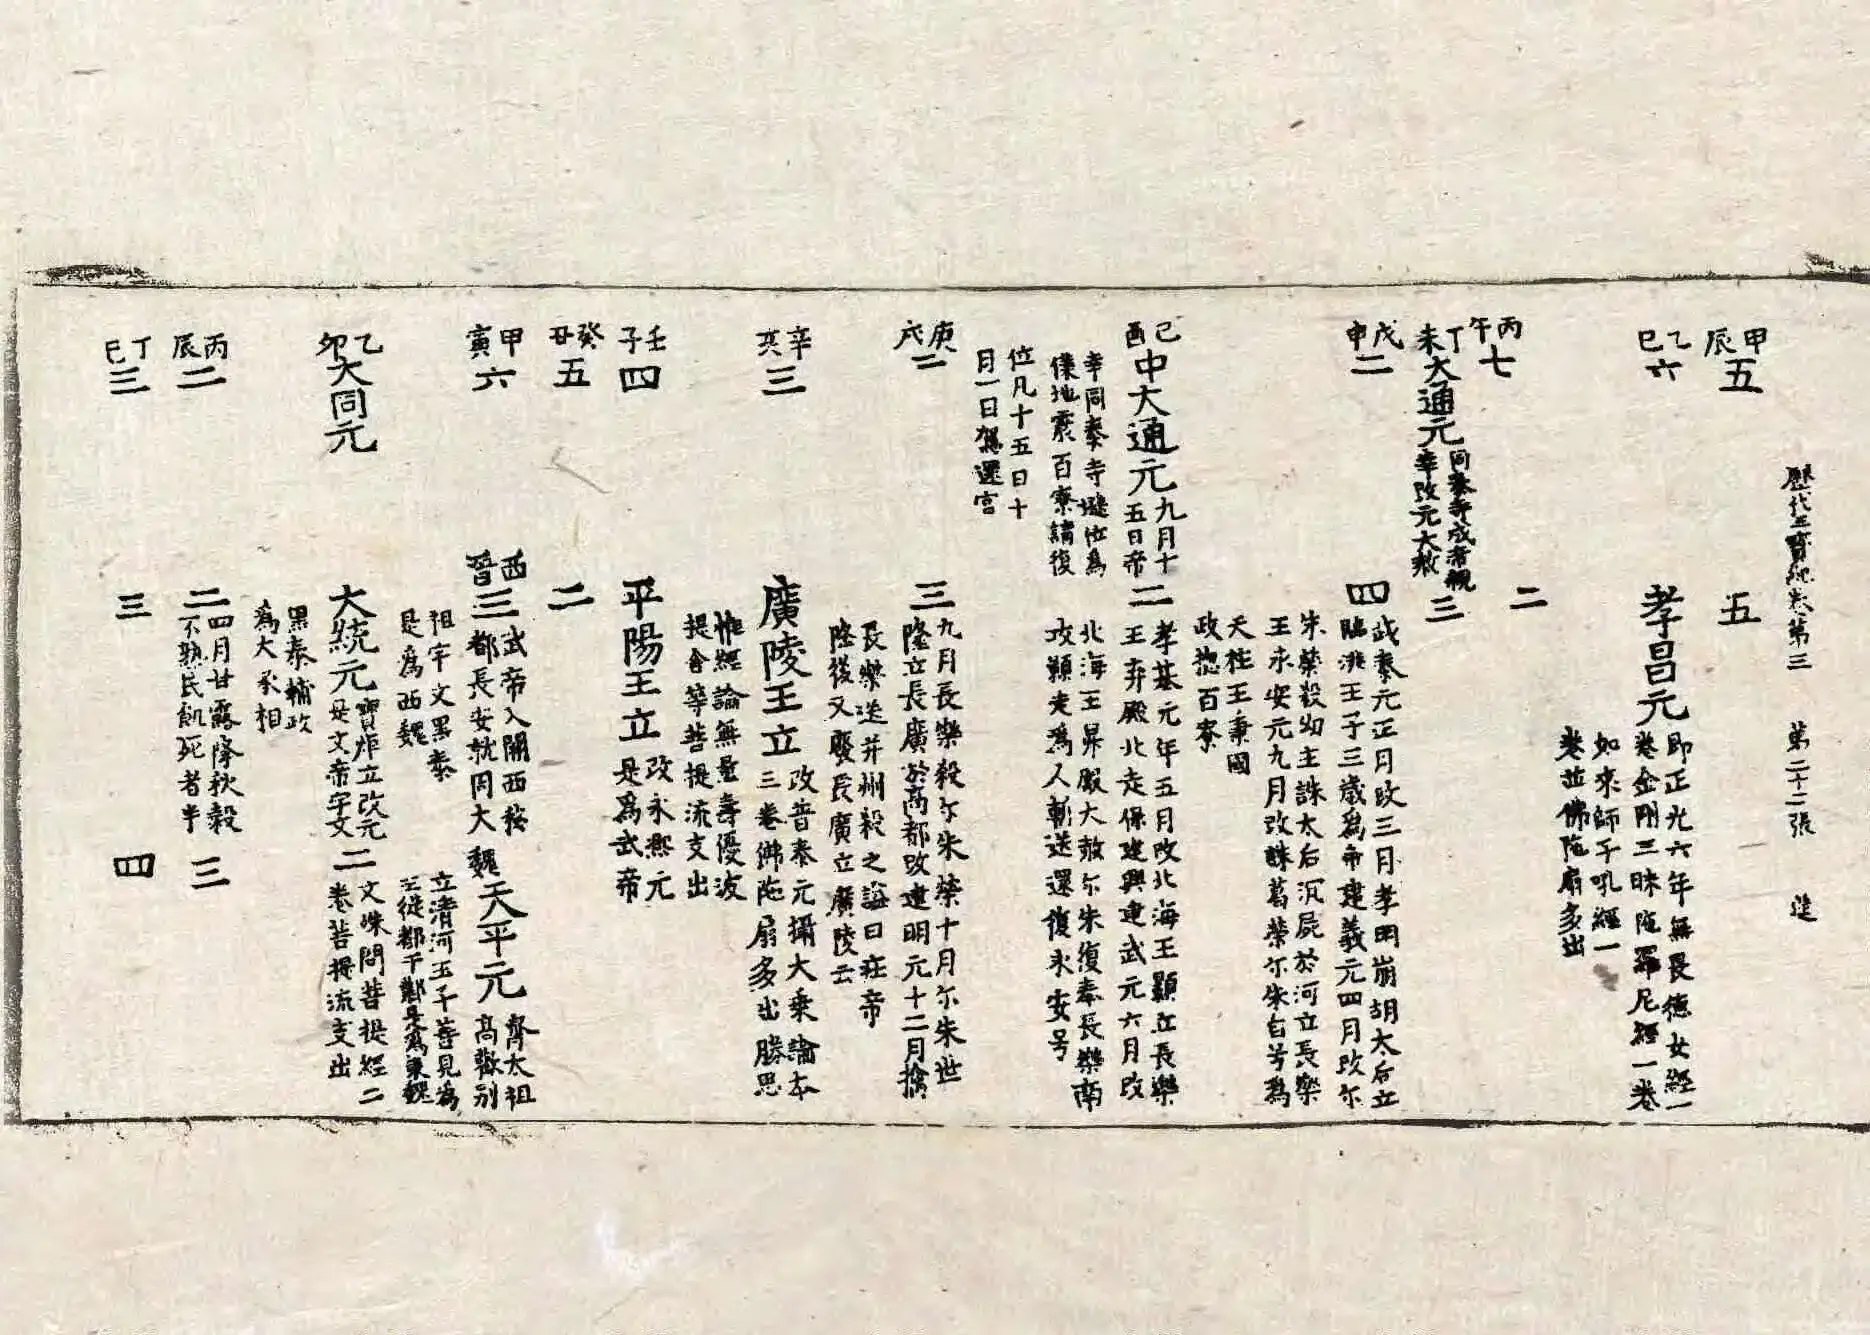 歷代三寶紀卷第三　第二十二張　進
甲辰
五
五
乙巳
六
孝昌元
即正光六年無畏德女經一
卷金剛三昧陀羅尼經一卷
如來師子吼經一
卷並佛陀扇多出
丙午
七
二
丁未
大通元
同泰寺成帝親
幸改元大赦
三
戊申
二
四
武泰元正月改三月孝明崩胡太后立
臨洮王子三歲為帝建義元四月改尒
朱榮殺幼主誅太后沉屍於河立長樂
王永安元九月改誅葛榮尒朱自号為
天柱王秉國
政揔百寮
己酉
中大通元
九月十
五日帝
幸同泰寺遜位為
僕地震百寮請復
位凡十五日十
月一日駕還宮
二
孝基元年五月改北海王顥立長樂
王弃殿北走保建興建武元六月改
北海王昇殿大赦尒朱復奉長樂南
攻顥走為人斬送還復永安号
庚戌
二
三
九月長樂殺尒朱榮十月尒朱世
隆立長廣於高都改建明元十二月擒
長樂送并州殺之謚曰莊帝
隆後又廢長廣立廣陵云
辛亥
三
廣陵王立
改普泰元攝大乘論本
三卷佛陀扇多出勝思
惟經論無量壽優波
提舍等菩提流支出
壬子
四
平陽王立
改永熙元
是為武帝
癸丑
五
二
甲寅
六
西晉
三
武帝入關西移
都長安就周大
祖宇文黑泰
是為西魏
魏
天平元
齊太祖
高歡別
立清河王子善見為
主徙都于鄴是為東魏
乙卯
大同元
大統元
寶炬立改元
是文帝宇文
黑泰輔政
為大丞相
二
文殊問菩提經二
卷菩提流支出
丙辰
二
二
四月甘露降秋穀
不熟民飢死者半
三
丁巳
三
三
四